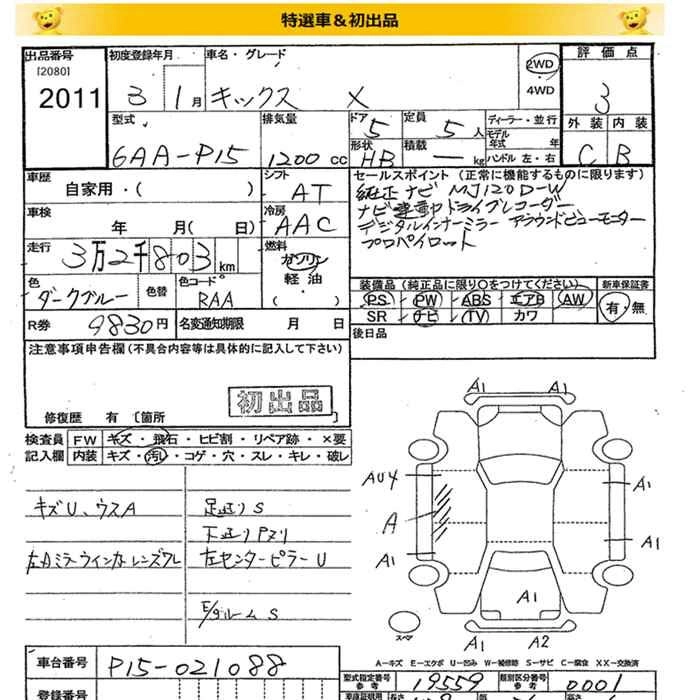 特選車＆初出品
出品番号
[2080]
2011
初度登録年月
3 1月
車名・グレード
キックス X
2WD
・
4WD
評価点
3
外装 内装
C B
型式
6AA-P15
排気量
1200 cc
ドア
5
定員
5人
形状
HB
積載
— kg
ディーラー・並行
モデル
年式 年
ハンドル 左・右
車歴
自家用・( )
シフト
AT
車検
年 月( 日)
冷房
AAC
走行
3万2千803km
燃料
ガソリン
軽油
( ・ )
色
ダークブルー
色替
色コード
RAA
R券 9830円
名変通知期限 月 日
セールスポイント (正常に機能するものに限ります)
純正ナビ MJ120D-W
ナビ連動ドライブレコーダー
デジタルインナーミラー アラウンドビューモニター
プロパイロット
装備品 (純正品に限り○をつけてください)
PS PW ABS エアB AW
SR ナビ TV カワ
新車保証書
有・無
後日品
注意事項申告欄 (不具合内容等は具体的に記入して下さい)
初出品
修復歴 有 〔箇所
検査員
記入欄
FW キズ・飛石・ヒビ割・リペア跡・×要
内装 キズ・汚レ・コゲ・穴・スレ・キレ・破レ
キズU、ウスA
左Aミラーウインカーレンズワレ
足廻りS
下廻りPヌリ
左センターピラーU
E/gルームS
A1 A1
AU4
A
A1
A1
A1
A1
A1 A2
スペア
A－キズ E－エクボ U－凹み W－補修跡 S－サビ C－腐食 XX－交換済
車台番号
P15-021088
登録番号
型式指定番号
参考
19559
類別区分番号
参考
0001